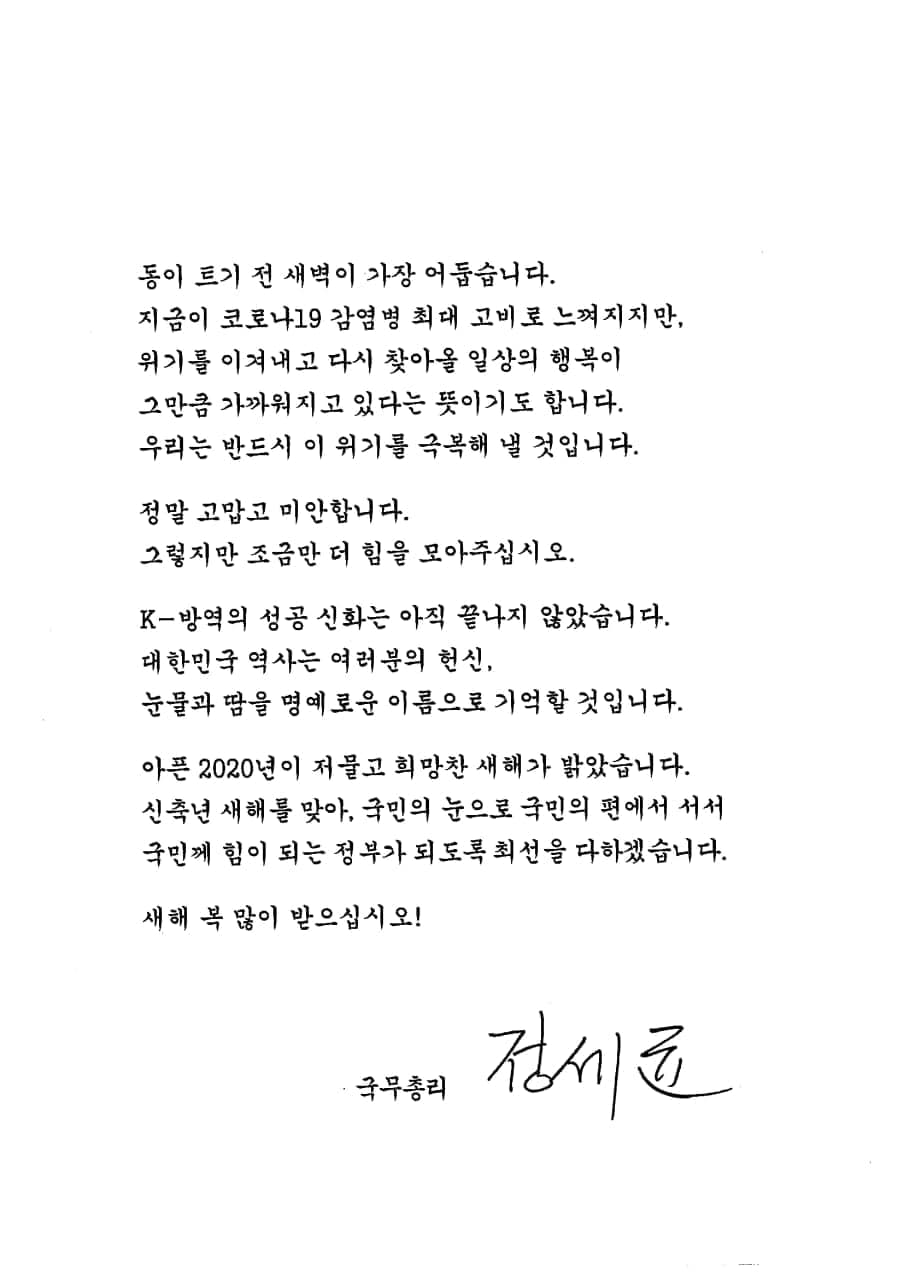 동이 트기 전 새벽이 가장 어둡습니다.
지금이 코로나19 감염병 최대 고비로 느껴지지만,
위기를 이겨내고 다시 찾아올 일상의 행복이
그만큼 가까워지고 있다는 뜻이기도 합니다.
우리는 반드시 이 위기를 극복해 낼 것입니다.
정말 고맙고 미안합니다.
그렇지만 조금만 더 힘을 모아주십시오.
K-방역의 성공 신화는 아직 끝나지 않았습니다.
대한민국 역사는 여러분의 헌신,
눈물과 땀을 명예로운 이름으로 기억할 것입니다.
아픈 2020년이 저물고 희망찬 새해가 밝았습니다.
신축년 새해를 맞아, 국민의 눈으로 국민의 편에서 서서
국민께 힘이 되는 정부가 되도록 최선을 다하겠습니다.
새해 복 많이 받으십시오!
국무총리 정세균